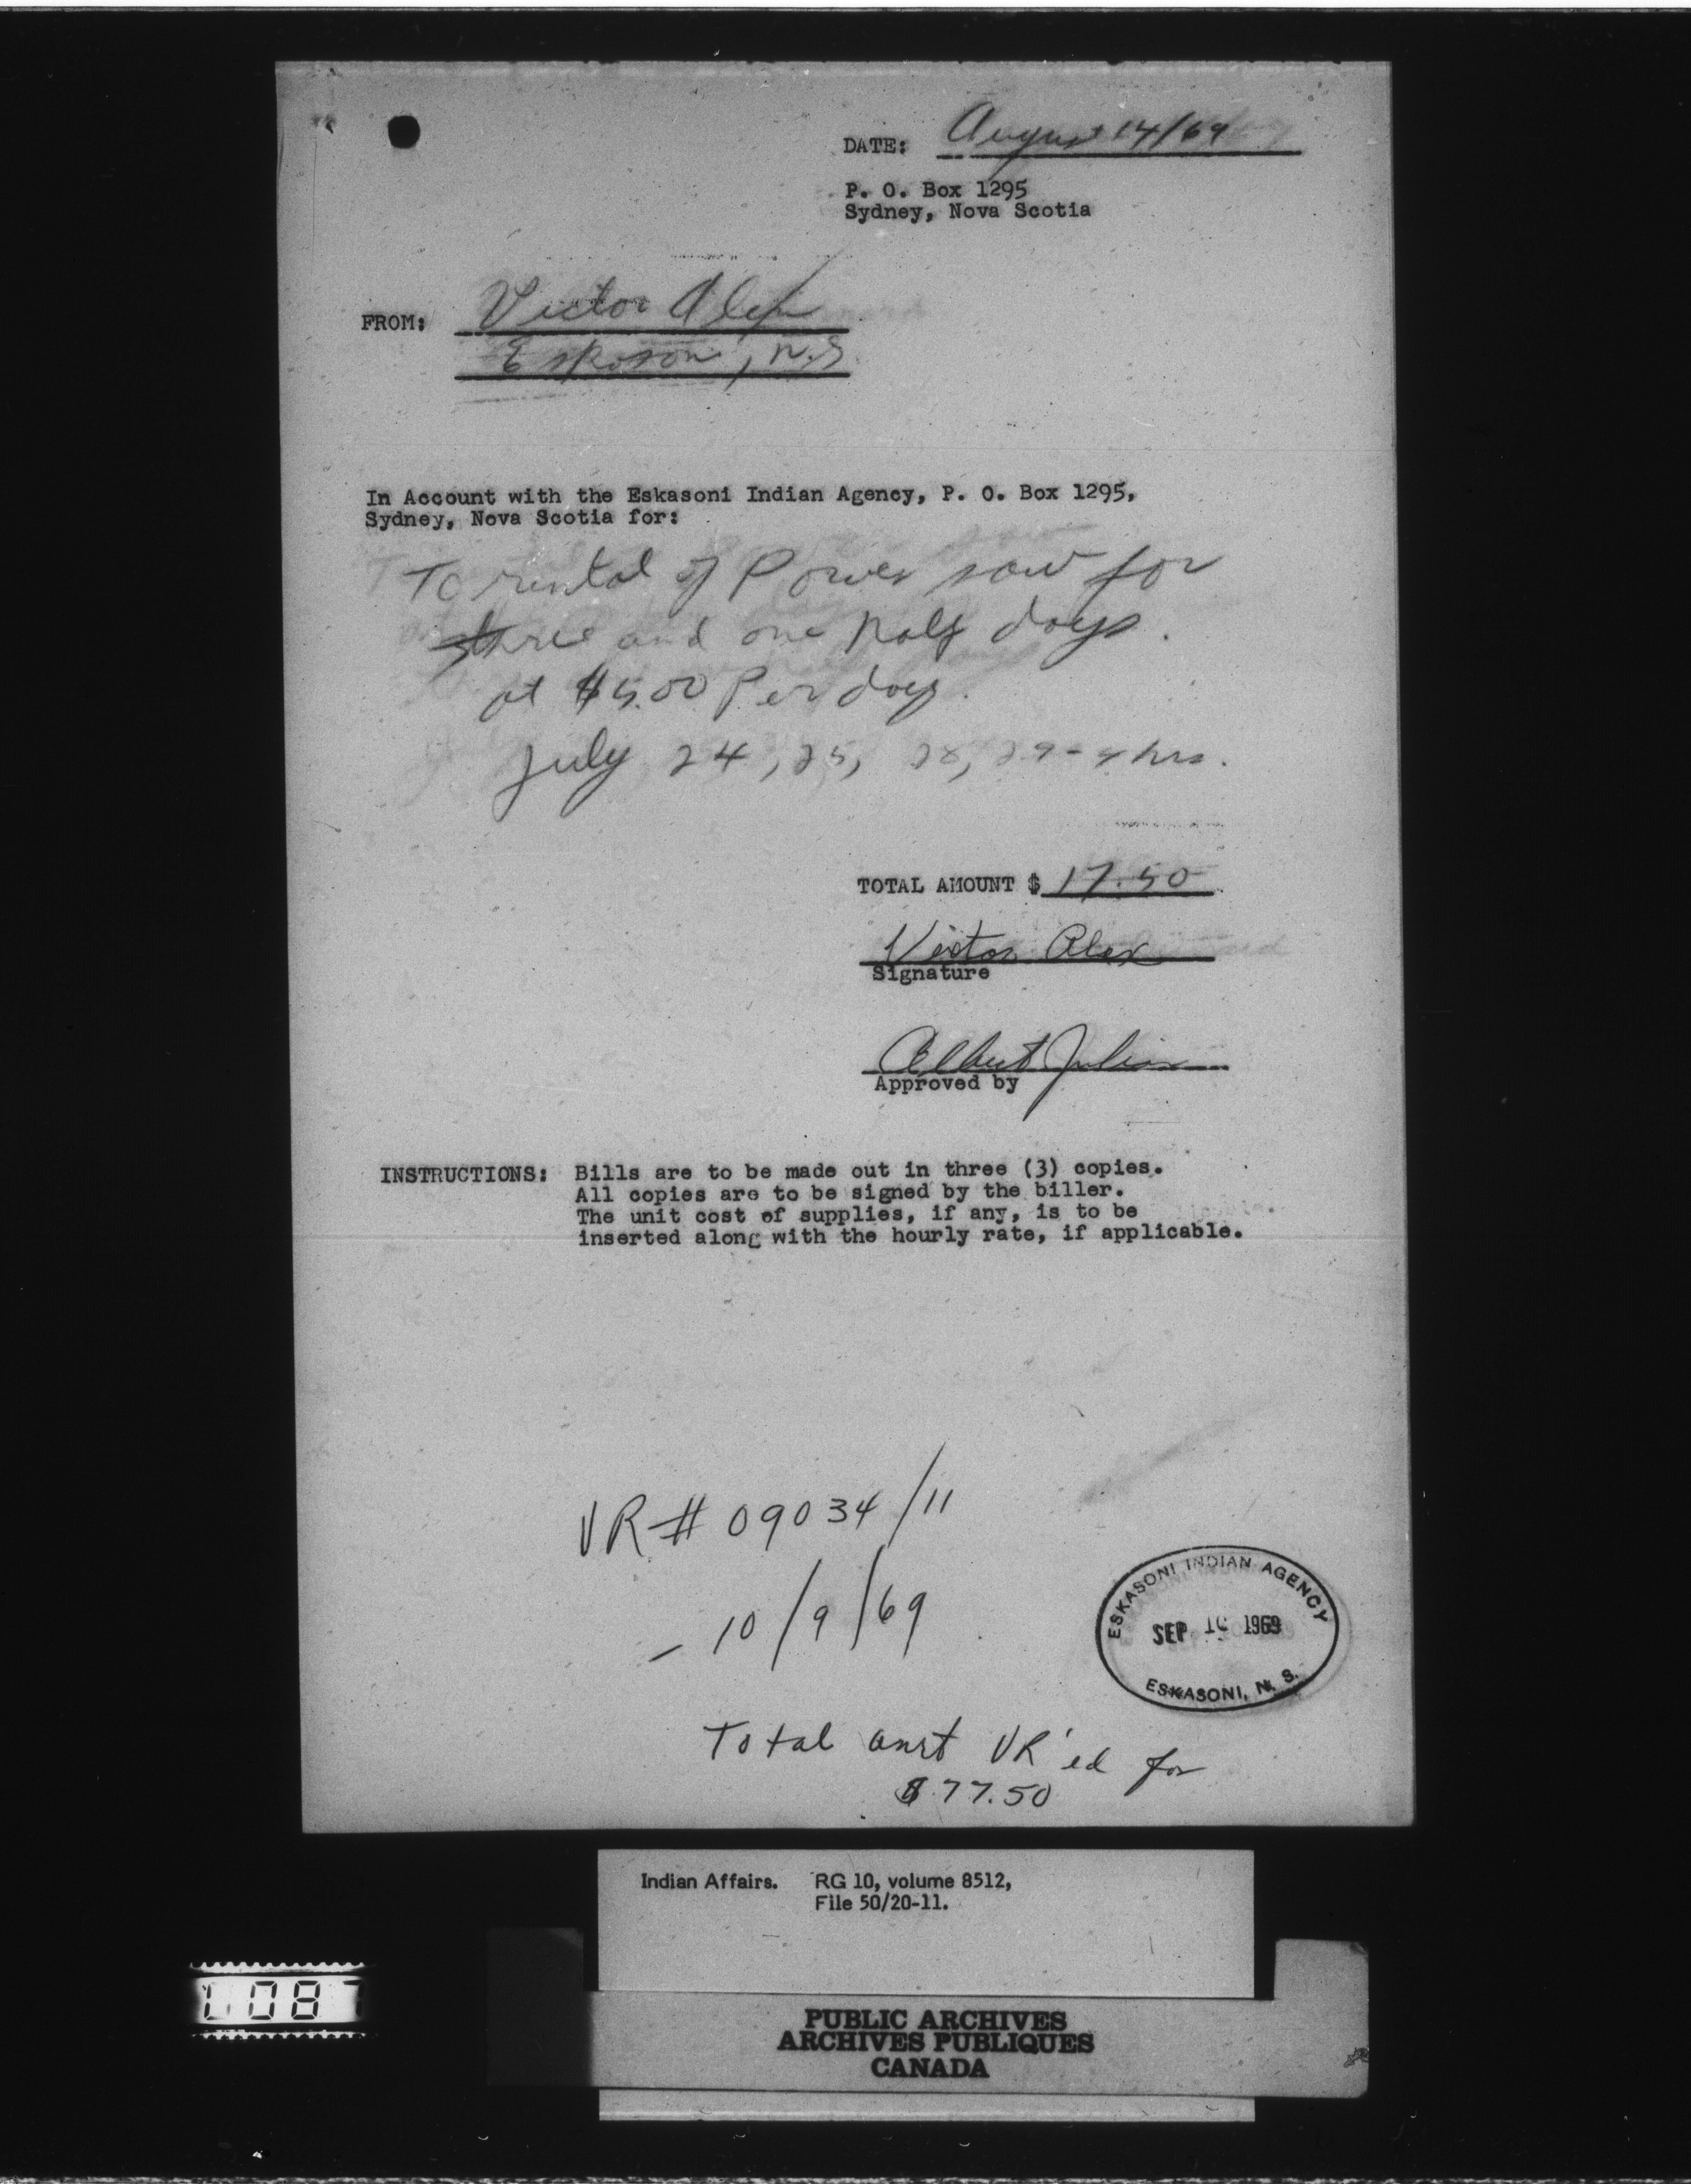 DATE: August 14/69
P. O. Box 1295
Sydney, Nova Scotia
FROM: Victor Alex
Eskasoni, N.S.
In Account with the Eskasoni Indian Agency, P. O. Box 1295,
Sydney, Nova Scotia for:
To rental of Power saw for
three and one half days.
at $5.00 Per day.
July 24, 25, 28, 29 - 4 hrs.
TOTAL AMOUNT $ 17.50
Victor Alex
Signature
Albert Julian
Approved by
INSTRUCTIONS: Bills are to be made out in three (3) copies.
All copies are to be signed by the biller.
The unit cost of supplies, if any, is to be
inserted along with the hourly rate, if applicable.
VR # 09034/11
- 10/9/69
ESKASONI INDIAN AGENCY
SEP 10 1969
ESKASONI, N. S.
Total amt VR'ed for
$77.50
Indian Affairs. RG 10, volume 8512,
File 50/20-11.
PUBLIC ARCHIVES
ARCHIVES PUBLIQUES
CANADA